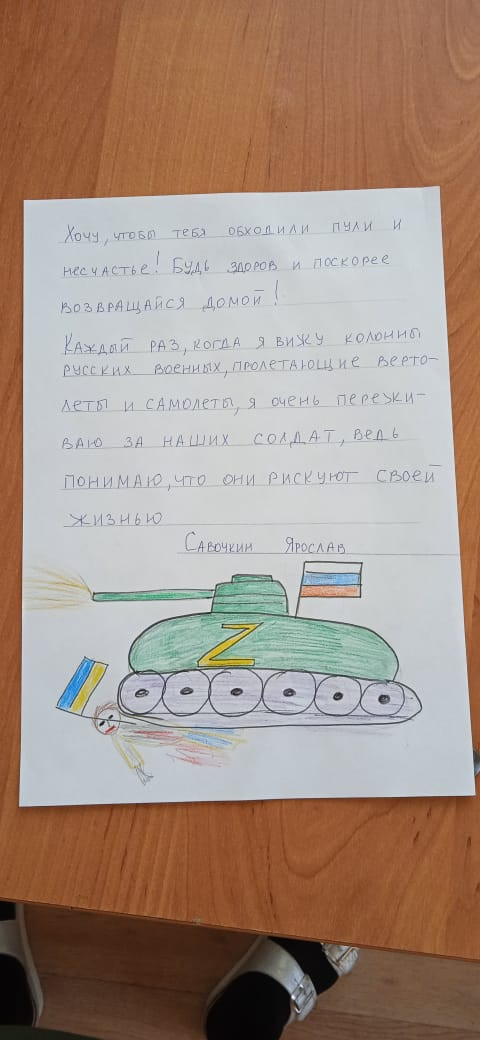 Хочу, чтобы тебя обходили пули и
несчастье! Будь здоров и поскорее
возвращайся домой!
Каждый раз, когда я вижу колонны
русских военных, пролетающие верто-
леты и самолеты, я очень пережи-
ваю за наших солдат, ведь
понимаю, что они рискуют своей
жизнью
Савочкин Ярослав
Z